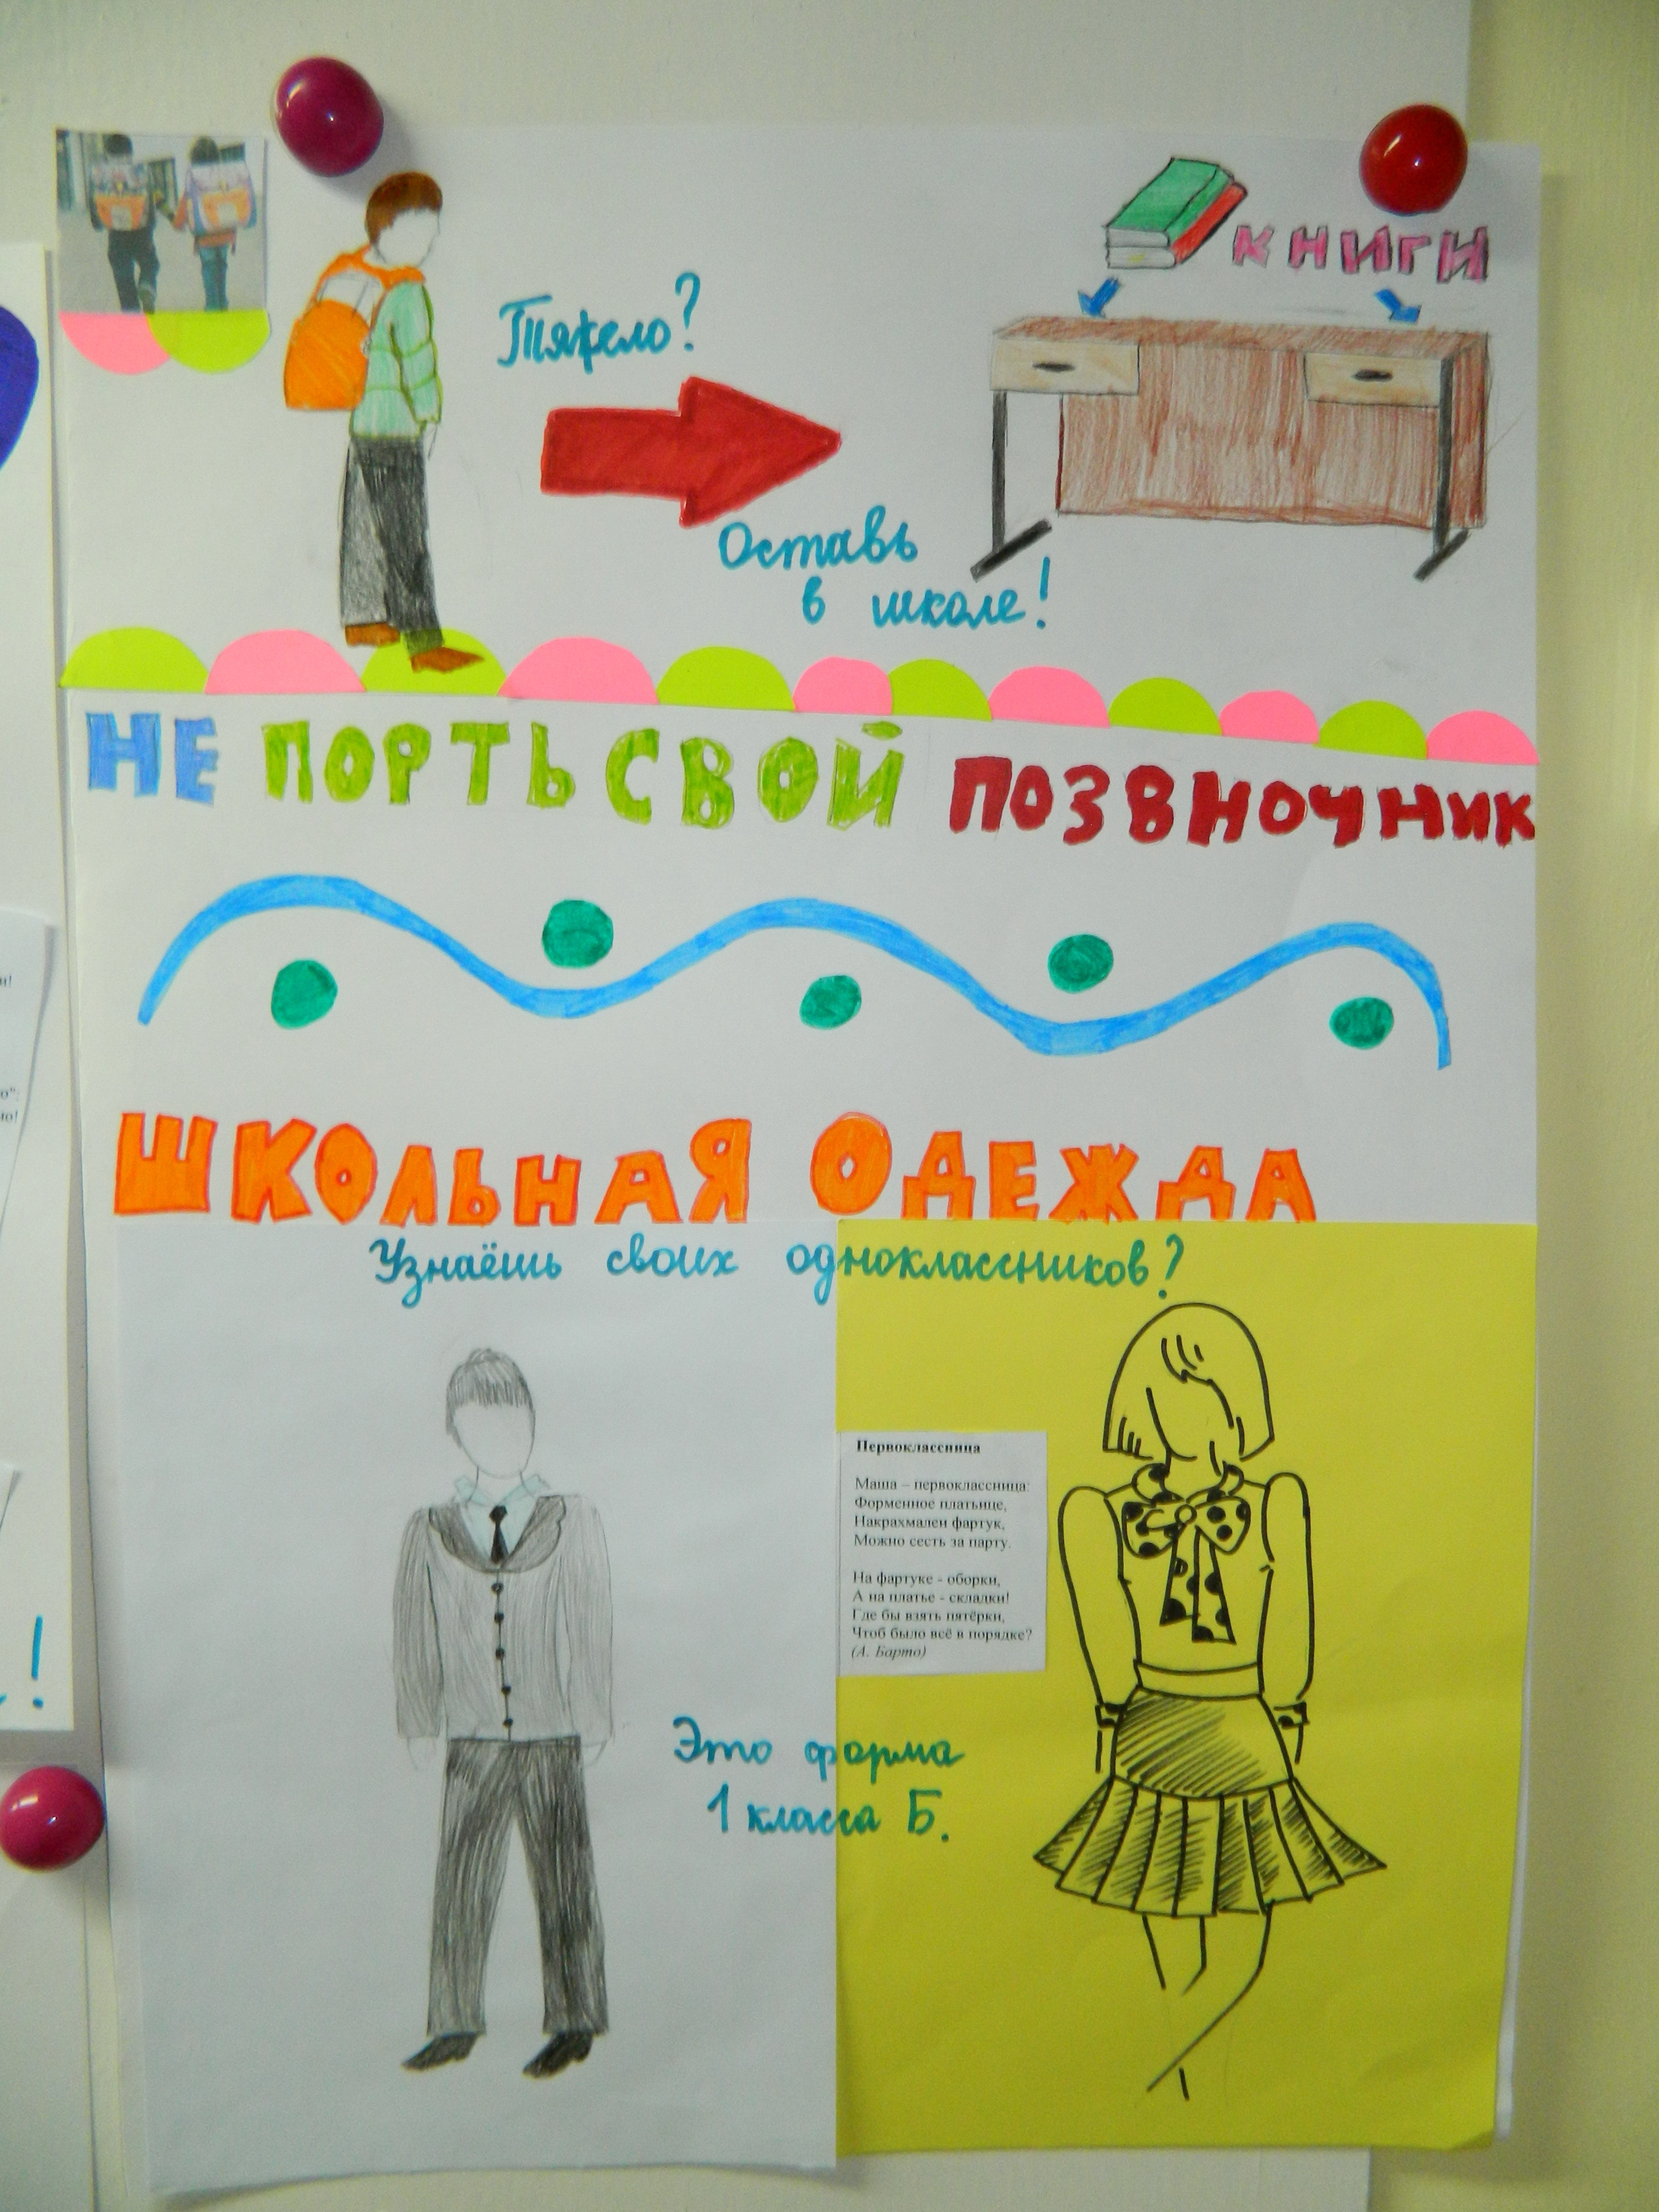 КНИГИ
Тяжело?
Оставь
в школе!
НЕ ПОРТЬ СВОЙ ПОЗВНОЧНИК
ШКОЛЬНАЯ ОДЕЖДА
Узнаёшь своих одноклассников?
Первоклассница
Маша – первоклассница:
Форменное платьице,
Накрахмален фартук,
Можно сесть за парту.
На фартуке - оборки,
А на платье - складки!
Где бы взять пятёрки,
Чтоб было всё в порядке?
(А. Барто)
Это форма
1 класса Б.